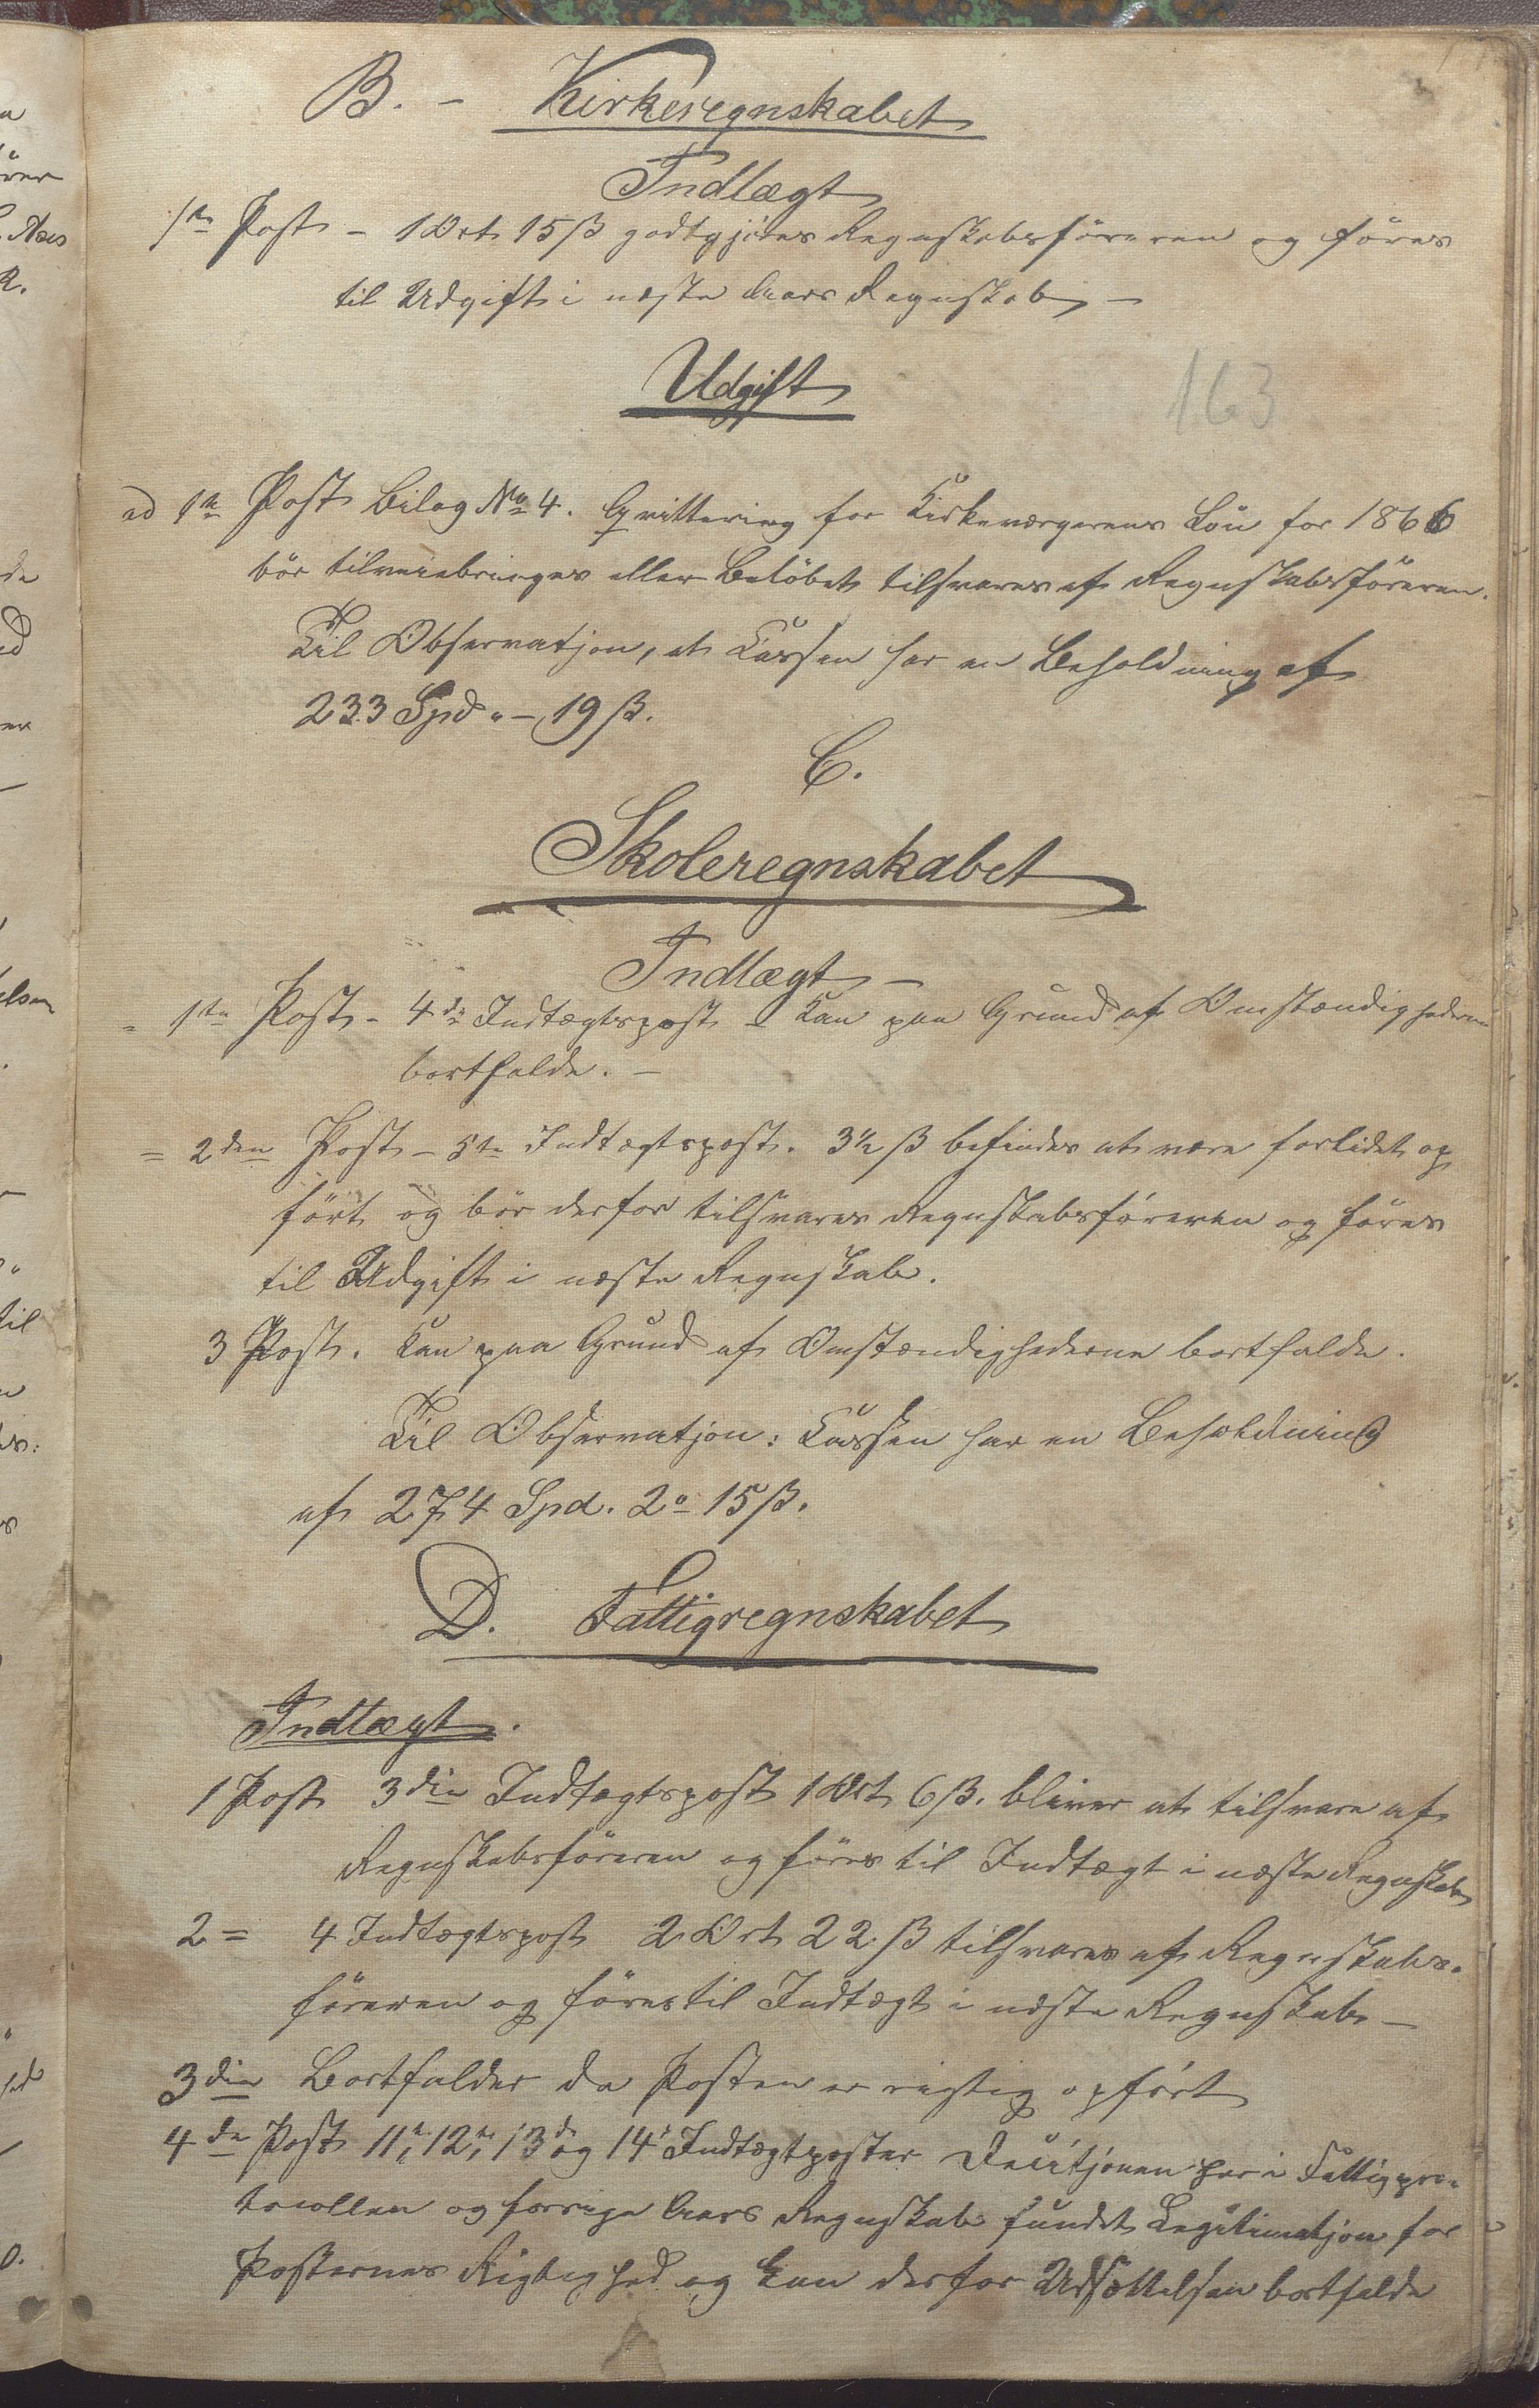 B. - Kirkeregnskabet
Indtægt
1te Post - 1 Ort 15 ß godtgjöres Regnskabsföreren og föres
til Udgift i næste Aars Regnskab -
Udgift
163
ad 1te Post Bilag No 4. Qvittering for Kirkeværgerens Lön for 1866
bör tilveiebringes eller Belöbet tilsvares af Regnskabsföreren.
Til Observatjon, at Kassen har en Beholdning af
233 Spd " - 19 ß.
C.
Skoleregnskabet
Indtægt -
= 1te Post - 4de Indtægtspost - Kan paa Grund af Omstændighederne
bortfalde. -
= 2den Post - 5te Indtægtspost. 3½ ß befindes at være forlidet op
fört og bör derfor tilsvares Regnskabsföreren og föres
til Udgift i næste Regnskab.
3 Post. Kan paa Grund af Omstændighederne bortfalde.
Til Observatjon: Kassen har en Beholdning
af 274 Spd. 2 o 15 ß.
D. Fattigregnskabet
Indtægt.
1 Post 3die Indtægtspost 1 Ort 6 ß. bliver at tilsvare af
Regnskabsföreren og föres til Indtægt i næste Regnskab
2 = 4 Indtægtspost 2 Ort 22 ß tilsvares af Regnskabs-
föreren og föres til Indtægt i næste Regnskab -
3die Bortfalder da Posten er rigtig opfört
4de Post 11te, 12te, 13de og 14de Indtægtposter Decitjonen har i Fattigpro-
tocollen og forrige Aars Regnskab fundet Legitimatjon for
Posternes Rigtighed og kan derfor Udsættelsen bortfalde